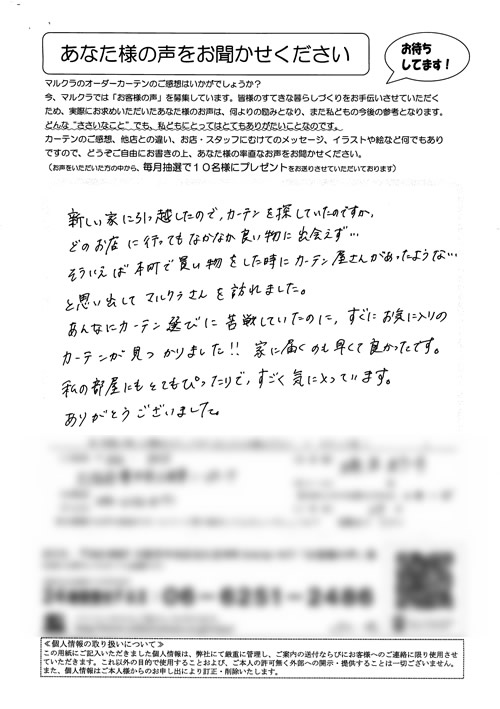 あなた様の声をお聞かせください
お待ち
してます!
マルクラのオーダーカーテンのご感想はいかがでしょうか?
今、マルクラでは「お客様の声」を募集しています。皆様のすてきな暮らしづくりをお手伝いさせていただく
ため、実際にお求めいただいたあなた様のお声は、何よりの励みとなり、また私どもの今後の参考となります。
どんな“ささいなこと”でも、私どもにとってはとてもありがたいことなのです。
カーテンのご感想、他店との違い、お店・スタッフにむけてのメッセージ、イラストや絵など何でもあり
ですので、どうぞご自由にお書きの上、あなた様の率直なお声をお聞かせください。
(お声をいただいた方の中から、毎月抽選で10名様にプレゼントをお送りさせていただいております)
新しい家に引っ越したので、カーテンを探していたのですが、
どのお店に行ってもなかなか良い物に出会えず…
そういえば本町で買い物をした時にカーテン屋さんがあったような…
と思い出してマルクラさんを訪れました。
あんなにカーテン選びに苦戦していたのに、すぐにお気に入りの
カーテンが見つかりました!! 家に届くのも早くて良かったです。
私の部屋にもとてもぴったりで、すごく気に入っています。
ありがとうございました。
06-6251-2486
≪個人情報の取り扱いについて≫
この用紙にご記入いただきました個人情報は、弊社にて厳重に管理し、ご案内の送付ならびにお客様へのご連絡に限り使用させ
ていただきます。これ以外の目的で使用することおよび、ご本人の許可無く外部への開示・提供することは一切ございません。
また、個人情報はご本人様からのお申し出により訂正・削除いたします。